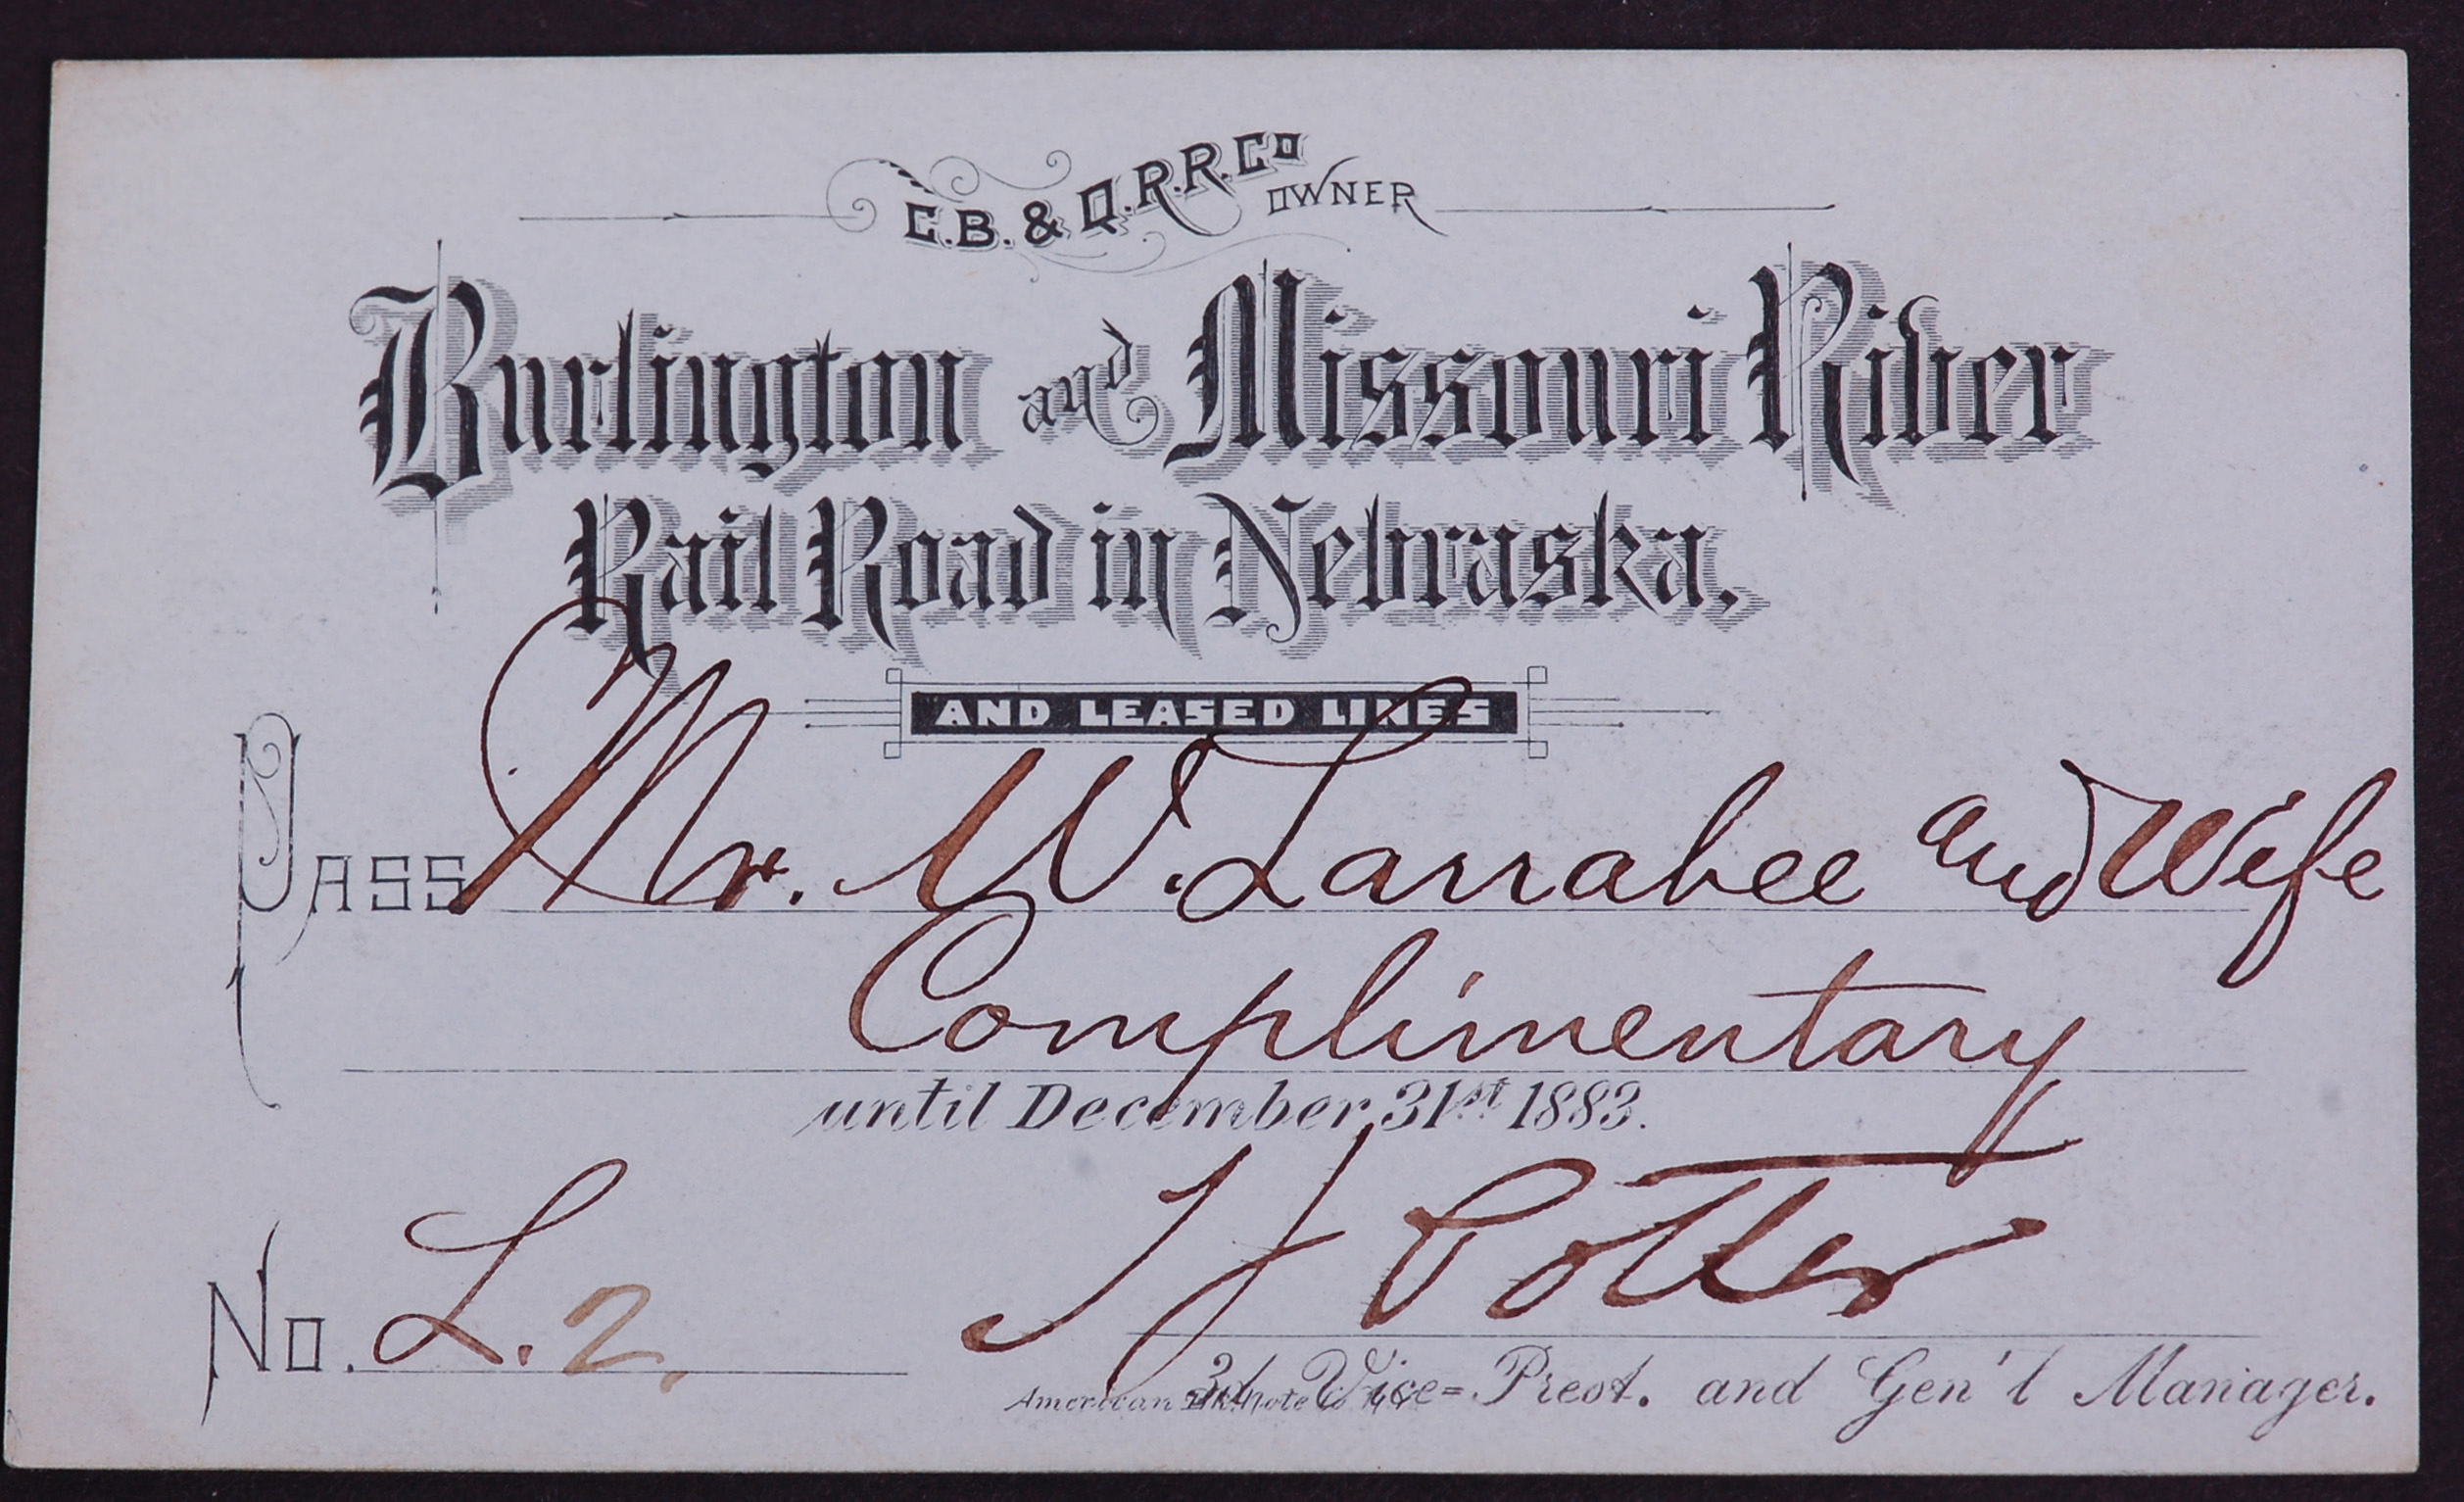 C.B. & Q.R.R.Co OWNER
Burlington and Missouri River
Rail Road in Nebraska,
AND LEASED LINES
PASS Mr. W. Larrabee and Wife
Complimentary
until December 31st 1883.
No. L. 2. T J Potter
3d Vice=Prest. and Gen'l Manager.
American Bk. Note Co. N.Y.